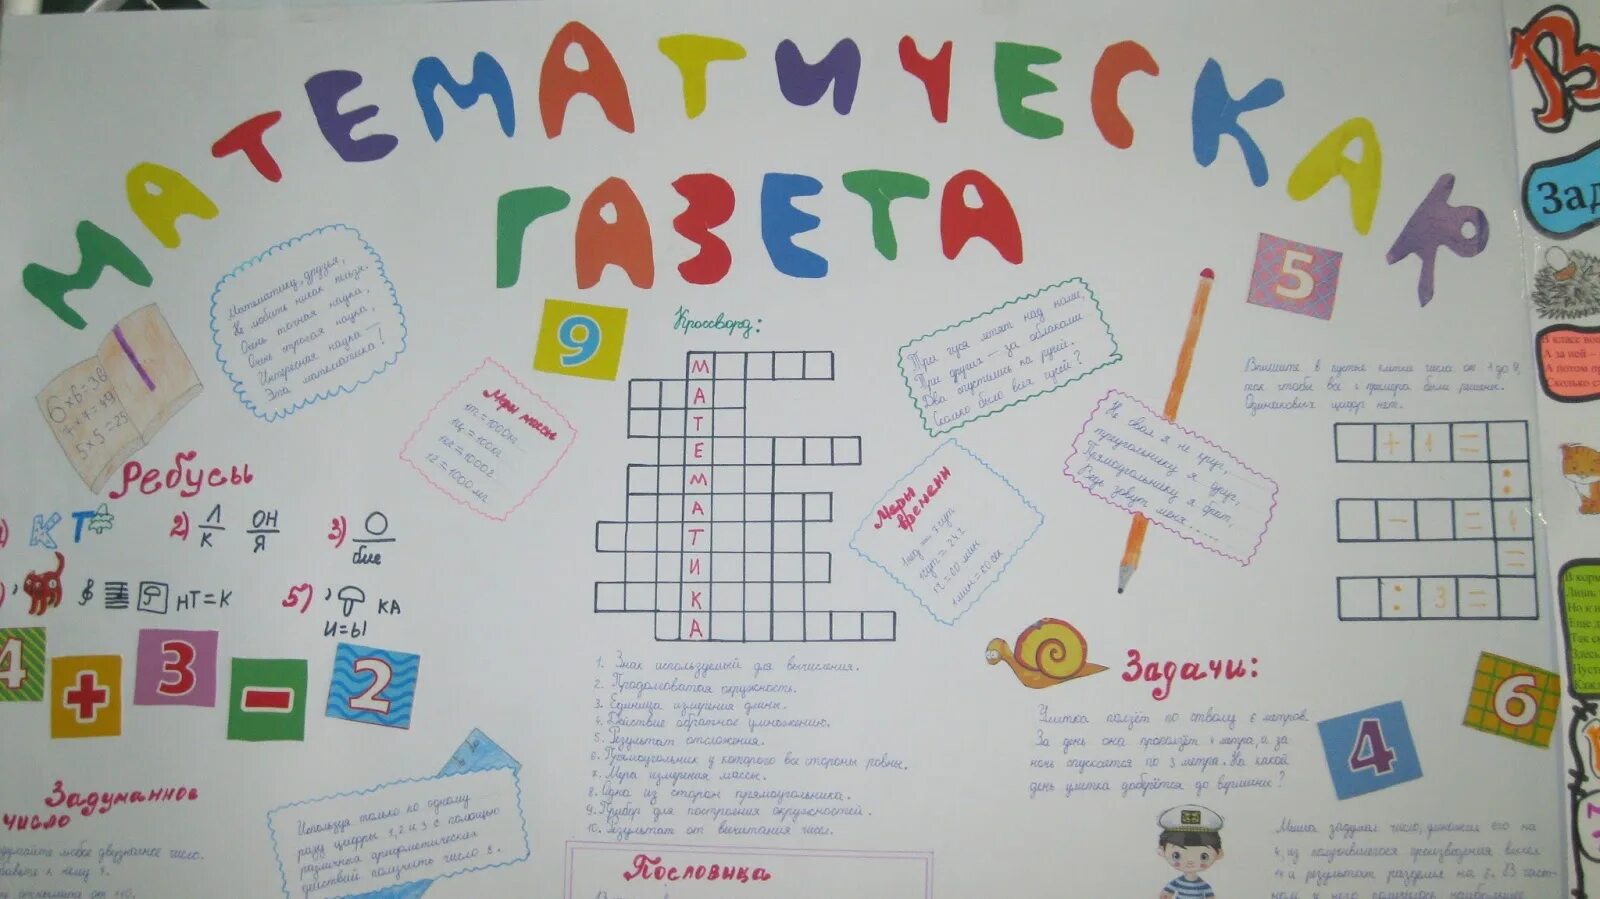 МАТЕМАТИЧЕСКАЯ
ГАЗЕТА
Математику, друзья,
Не любить никак нельзя.
Очень точная наука,
Очень строгая наука,
Интересная наука —
Эта математика!
6×6=36
7×7=49
5×5=25
Ребусы
К Т
2) Л
К
ОН
Я
3) О
бме
НТ=К
5) ' КА
И=Ы
4 + 3 - 2
Задуманное
число
любое двузначное число.
к нему
от
Используя только по одному
разу цифры 1, 2 и 3 с помощью
различных арифметических
действий получить число
9
Меры массы
1т=1000кг
1ц=100кг
1кг=1000г
1г=1000мг
Кроссворд:
М
А
Т
Е
М
А
Т
И
К
А
1. Знак используемый для вычисления.
2. Продолговатая окружность.
3. Единица измерения длины.
4. Действие обратное умножению.
5. Результат отсложения.
6. Прямоугольник у которого все стороны ровны.
7. Мера измерения массы.
8. Одна из сторон прямоугольника.
9. Прибор для построения окружностей.
10. Результат от вычитания чисел.
Пословица
Три гуся летят над нами,
Три других — за облаками
Два спустились на ручей.
Сколько было всех гусей?
Меры
времени
1нед — 7сут
1сут = 24ч
1ч = 60 мин
1мин = 60 сек
Не овал я и не круг,
треугольнику я друг,
Прямоугольнику я брат,
Ведь зовут меня......
5
Впишите в пустые клетки числа от 1 до 9,
так чтобы все примера были решены.
Одинаковых цифр нет.
+ 1 =
:
- = 4
=
: 3 =
Задачи:
Улитка ползёт по стволу 6 метров.
За день она проползёт 4 метра, а за
ночь спускается по 3 метра. На какой
день улитка доберётся до вершине?
4
6
Миша задумал число, умножил его на
4, из получившегося произведения вычел
и результат разделил на 5. В част-
ном у него получилось наибольшее
В
Зад
В класс во
А за ней –
А потом пр
Сколько с
В кор
Лишь
Но я н
Еще д
Так ск
Здесь
Пуст
Как